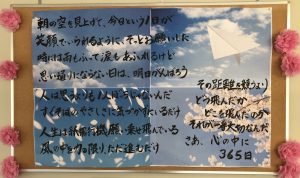 朝の空を見上げて、今日という1日が
笑顔でいられるように、そっとお願いした
時には雨もふって涙もあふれるけど
思い通りにならない日は、明日がんばろう
人は思うよりも1人ぼっちじゃないんだ
すぐそばのやさしさに気づかずにいるだけ
人生は紙飛行機、願い乗せて飛んでいる
風の中を力の限りただ進むだけ
その距離を競うより
どう飛んだか
どこを飛んだのか
それが一番大切なんだ
さあ、心の中に
365日